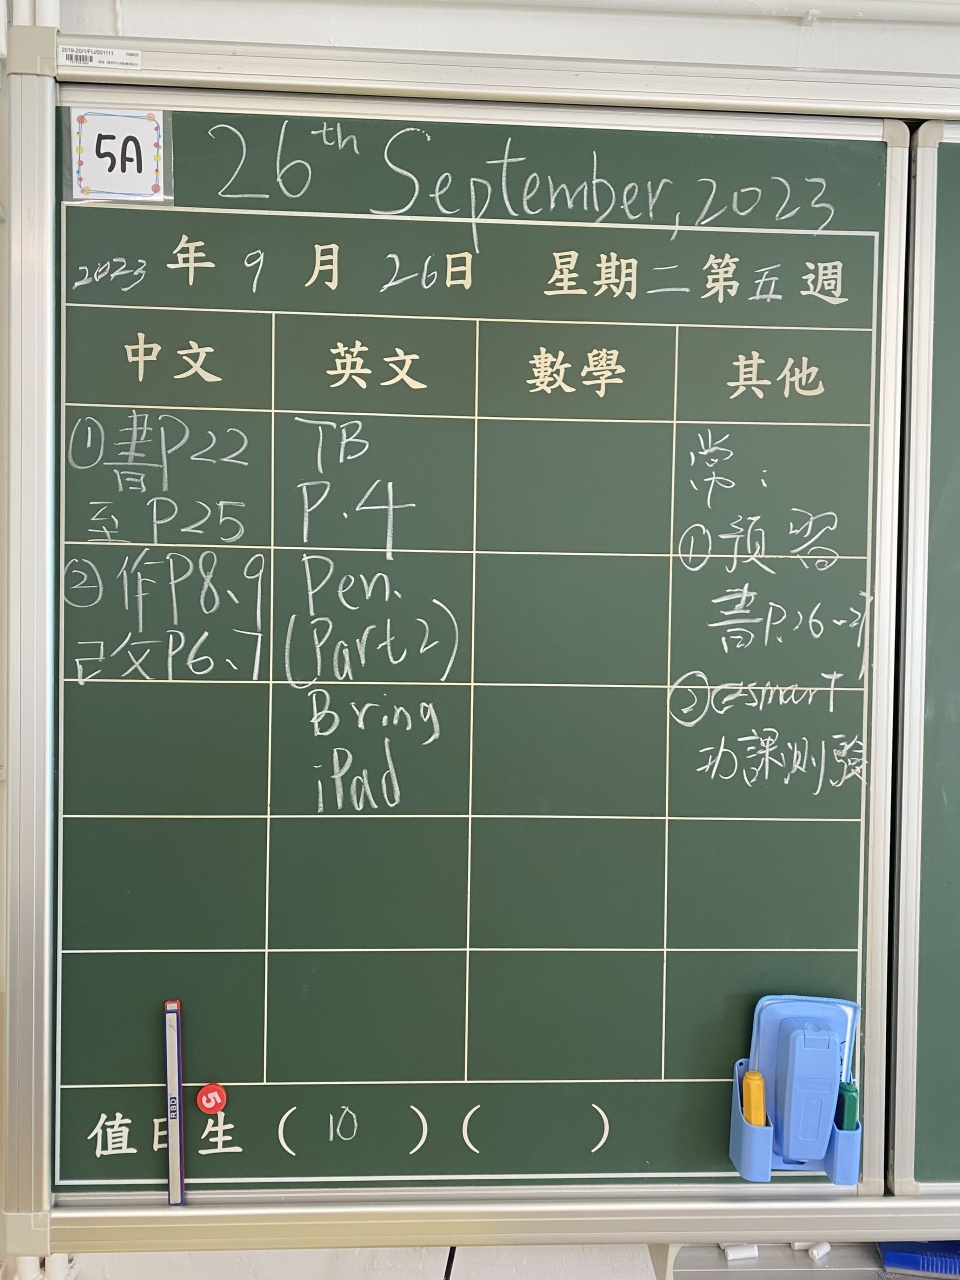 2019-20/1/FU/001111
5A
26th September, 2023
2023年9月26日 星期二第五週
中文 英文 數學 其他
①書P22
至P25
②作P8、9
已交P6、7
TB
P.4
Pen.
(Part 2)
Bring
iPad
常:
①預習
書P.26-27
②esmart
功課測驗
5
RBD
值日生(10)( )